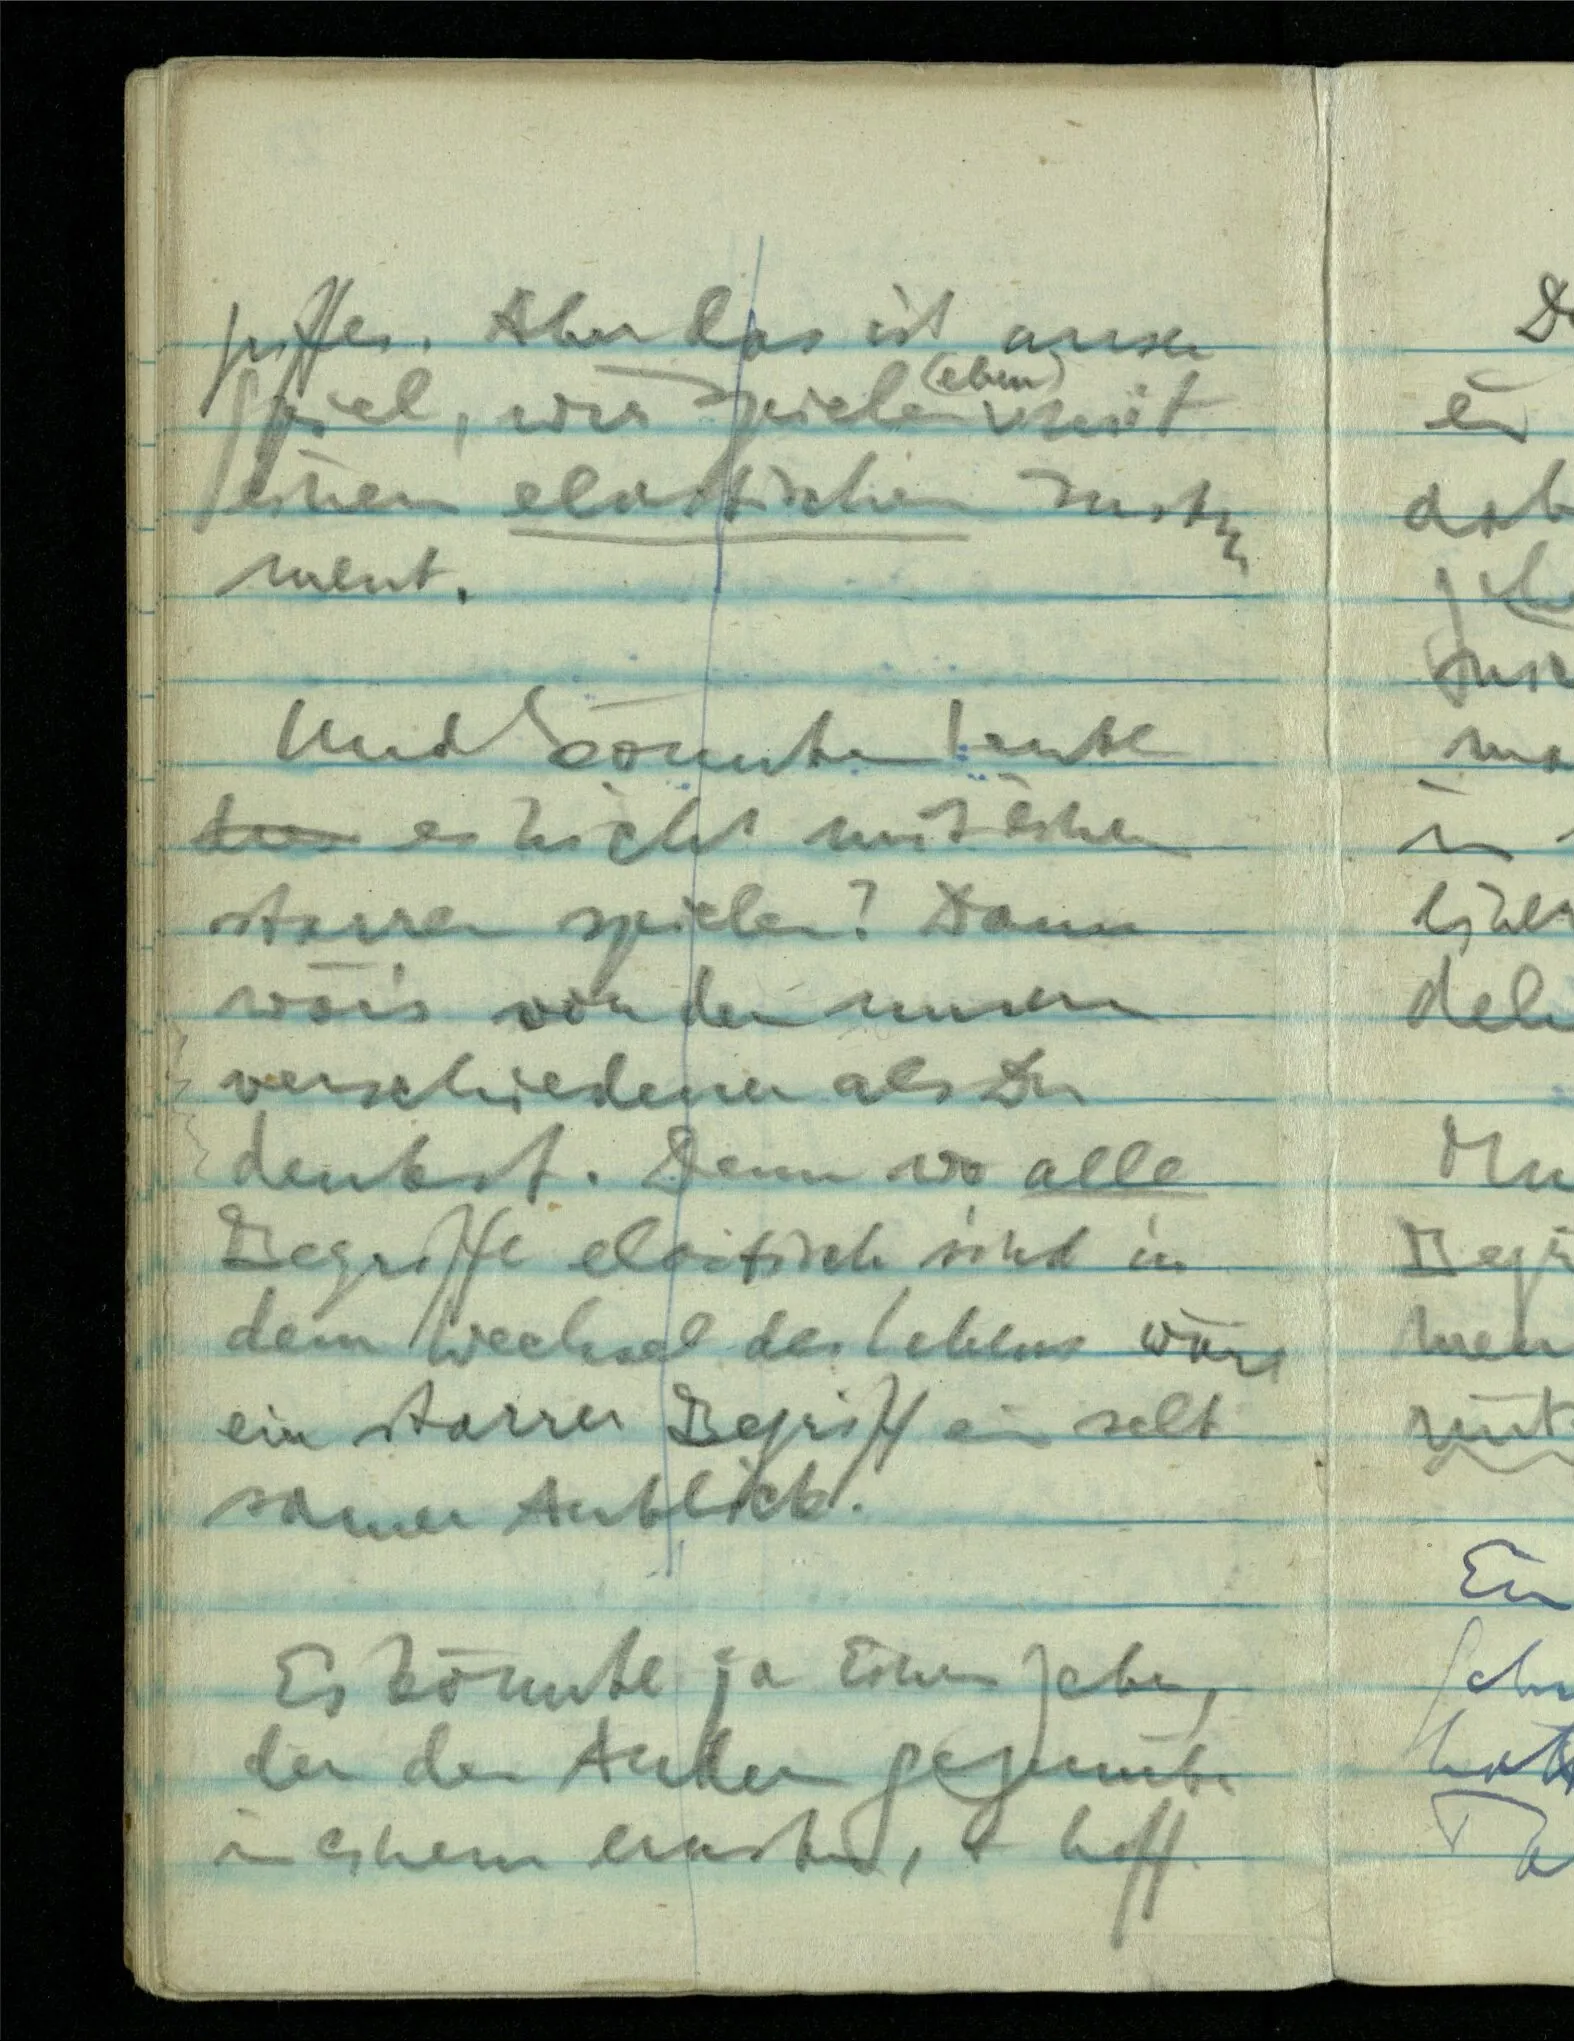 griffes. Aber das ist unser
Spiel, wir spielen (eben) mit
einem elastischen Instru
ment.
Und könnten Leute
es nicht mit einem
starren spielen? Dann
wär's von dem unsern
verschiedener als Du
denkst. Denn wo alle
Begriffe elastisch sind in
dem Wechsel des Lebens wäre
ein starrer Begriff ein selt
samer Anblick.
Es könnte ja Einen geben,
der den Andern gegenüber
in einem ernsten, &
De
ein
dab
in
Begr
Ein